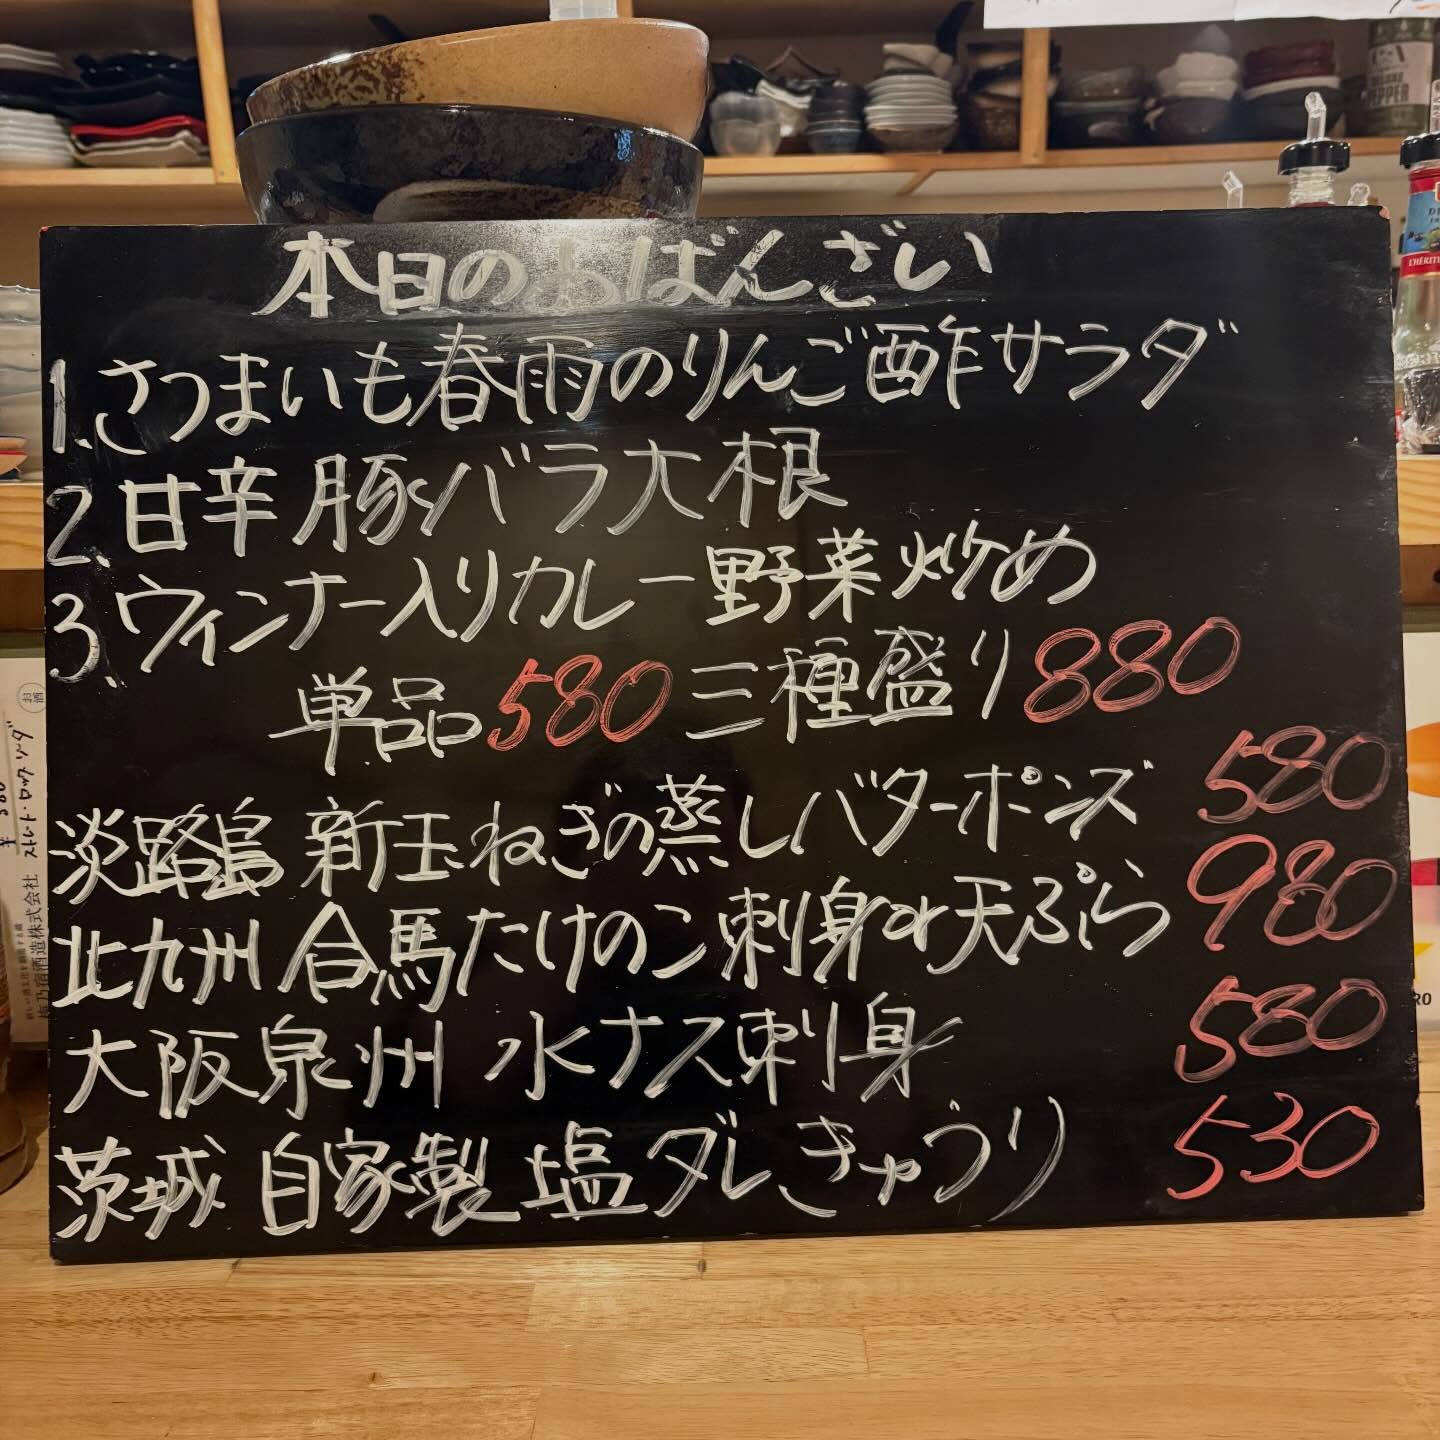 本日のおばんざい
1.さつまいも春雨のりんご酢サラダ
2.甘辛豚バラ大根
3.ウィンナー入りカレー野菜炒め
単品580 三種盛り880
淡路島 新玉ねぎの蒸しバターポンズ 580
北九州 合馬たけのこ刺身or天ぷら 980
大阪泉州 水ナス刺身 580
茨城 自家製 塩ダレきゅうり 530
お酒
ストレート・ロック・ソーダ
梅乃宿酒造株式会社